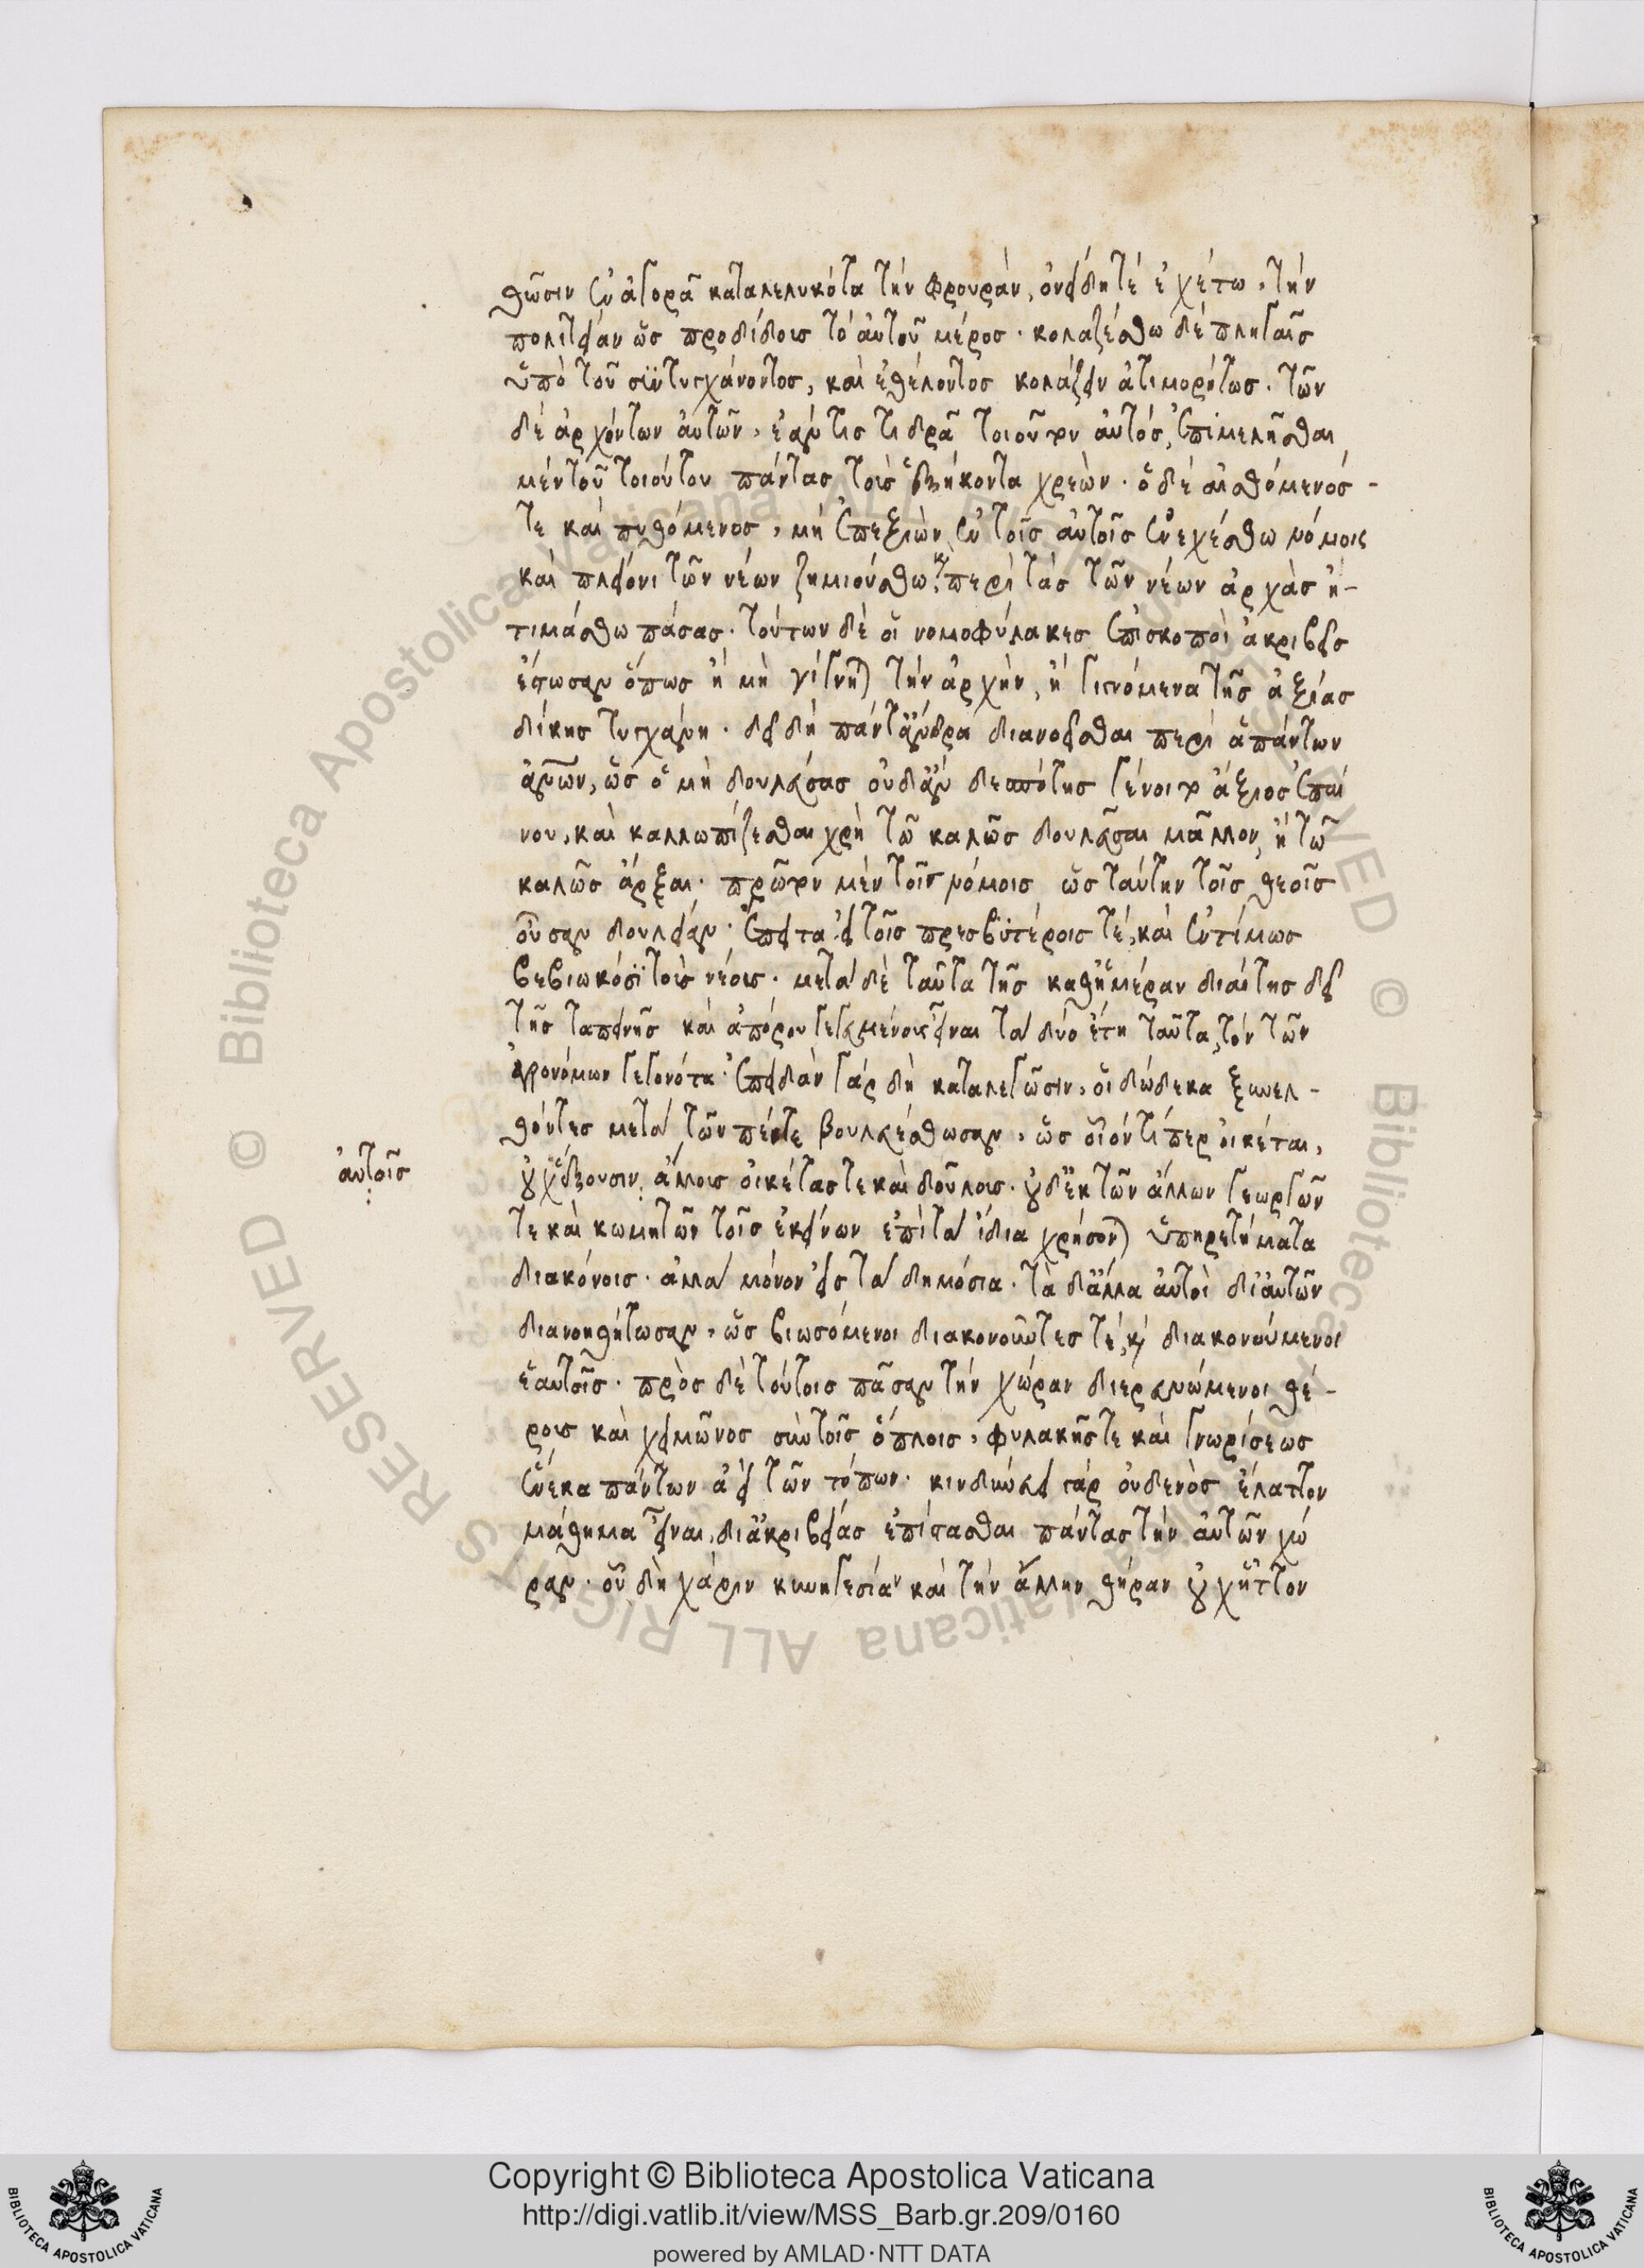 θῶσιν ἐν ἀγορᾶ καταλελυκότα τὴν φρουράν, ὀνείδη τέ ἐχέτω, τὴν
πολιτείαν ὡς προδιδοὺς τὸ αὑτοῦ μέρος. κολαζέσθω δὲ πληγαῖς
ὑπὸ τοῦ συντυγχάνοντος, καὶ ἐθέλοντος κολάζειν ἀτιμορήτως. τῶν
δὲ ἀρχόντων αὐτῶν, ἐάν τις τι δρᾶ τοιοῦτον αὐτός, ἐπιμελεῖσθαι
μὲν τοῦ τοιούτου πάντας τοὺς ἑξήκοντα χρεών. ὁ δὲ αἰσθόμενός -
τε καὶ πυθόμενος, μὴ ἐπεξιὼν ἐν τοῖς αὐτοῖς ἐνεχέσθω νόμοις
καὶ πλείονι τῶν νέων ζημιούσθω. καὶ περὶ τὰς τῶν νέων ἀρχὰς ἠ-
τιμάσθω πάσας. τούτων δὲ οἱ νομοφύλακες ἐπίσκοποι ἀκριβεῖς
ἔστωσαν ὅπως ἢ μὴ γίγνηται τὴν ἀρχὴν, ἢ γιγνόμενα τῆς ἀξίας
δίκης τυγχάνη. δεῖ δὴ πάντ' ἄνδρα διανοεῖσθαι περὶ ἁπάντων
ἀνθρώπων, ὡς ὁ μὴ δουλεύσας οὐδ' ἂν δεσπότης γένοιτο ἄξιος ἐπαί
νου, καὶ καλλωπίζεσθαι χρὴ τῶ καλῶς δουλεῦσαι μᾶλλον, ἢ τῶ
καλῶς ἄρξαι. πρῶτον μὲν τοῖς νόμοις ὡς ταύτην τοῖς θεοῖς
οὖσαν δουλείαν. ἔπειτα ἀεὶ τοῖς πρεσβυτέροις τέ, καὶ ἐντίμως
βεβιωκόσι τοὺς νέους. μετὰ δὲ ταῦτα τῆς καθ' ἡμέραν διαίτης δεῖ
τῆς ταπεινῆς καὶ ἀπόρου γεγευμένους εἶναι τὰ δύο ἔτη ταῦτα, τὸν τῶν
ἀγρονόμων γεγονότα. ἐπειδὰν γὰρ δὴ καταλεγῶσιν, οἱ δώδεκα ξυνελ-
θόντες μετὰ τῶν πέντε βουλευέσθωσαν, ὡς οἷόν τί περ οἰκέται,
αὐτοῖς
οὐχ ἕξουσιν ἄλλους οἰκέτας τε καὶ δούλους. οὐδ' ἐκ τῶν ἄλλων γεωργῶν
τε καὶ κωμητῶν τοῖς ἐκείνων ἐπὶ τὰ ἴδια χρήσονται ὑπηρετήματα
διακόνοις. ἀλλὰ μόνον εἰς τὰ δημόσια. τὰ δ' ἄλλα αὐτοὶ δι' αὑτῶν
διανοηθήτωσαν, ὡς βιωσόμενοι διακονοῦντες τέ, καὶ διακονούμενοι
ἑαυτοῖς. πρὸς δὲ τούτοις πᾶσαν τὴν χώραν διερευνώμενοι θέ-
ρους καὶ χειμῶνος σὺν τοῖς ὅπλοις, φυλακῆς τε καὶ γνωρίσεως
ἕνεκα πάντων ἀεὶ τῶν τόπων. κινδυνεύει γὰρ οὐδενὸς ἔλαττον
μάθημα εἶναι, δι' ἀκριβείας ἐπίστασθαι πάντας τὴν αὑτῶν χώ
ραν. οὗ δὴ χάριν κυνηγεσίαν καὶ τὴν ἄλλην θήραν οὐχ ἧττον
Copyright © Biblioteca Apostolica Vaticana
http://digi.vatlib.it/view/MSS_Barb.gr.209/0160
powered by AMLAD·NTT DATA